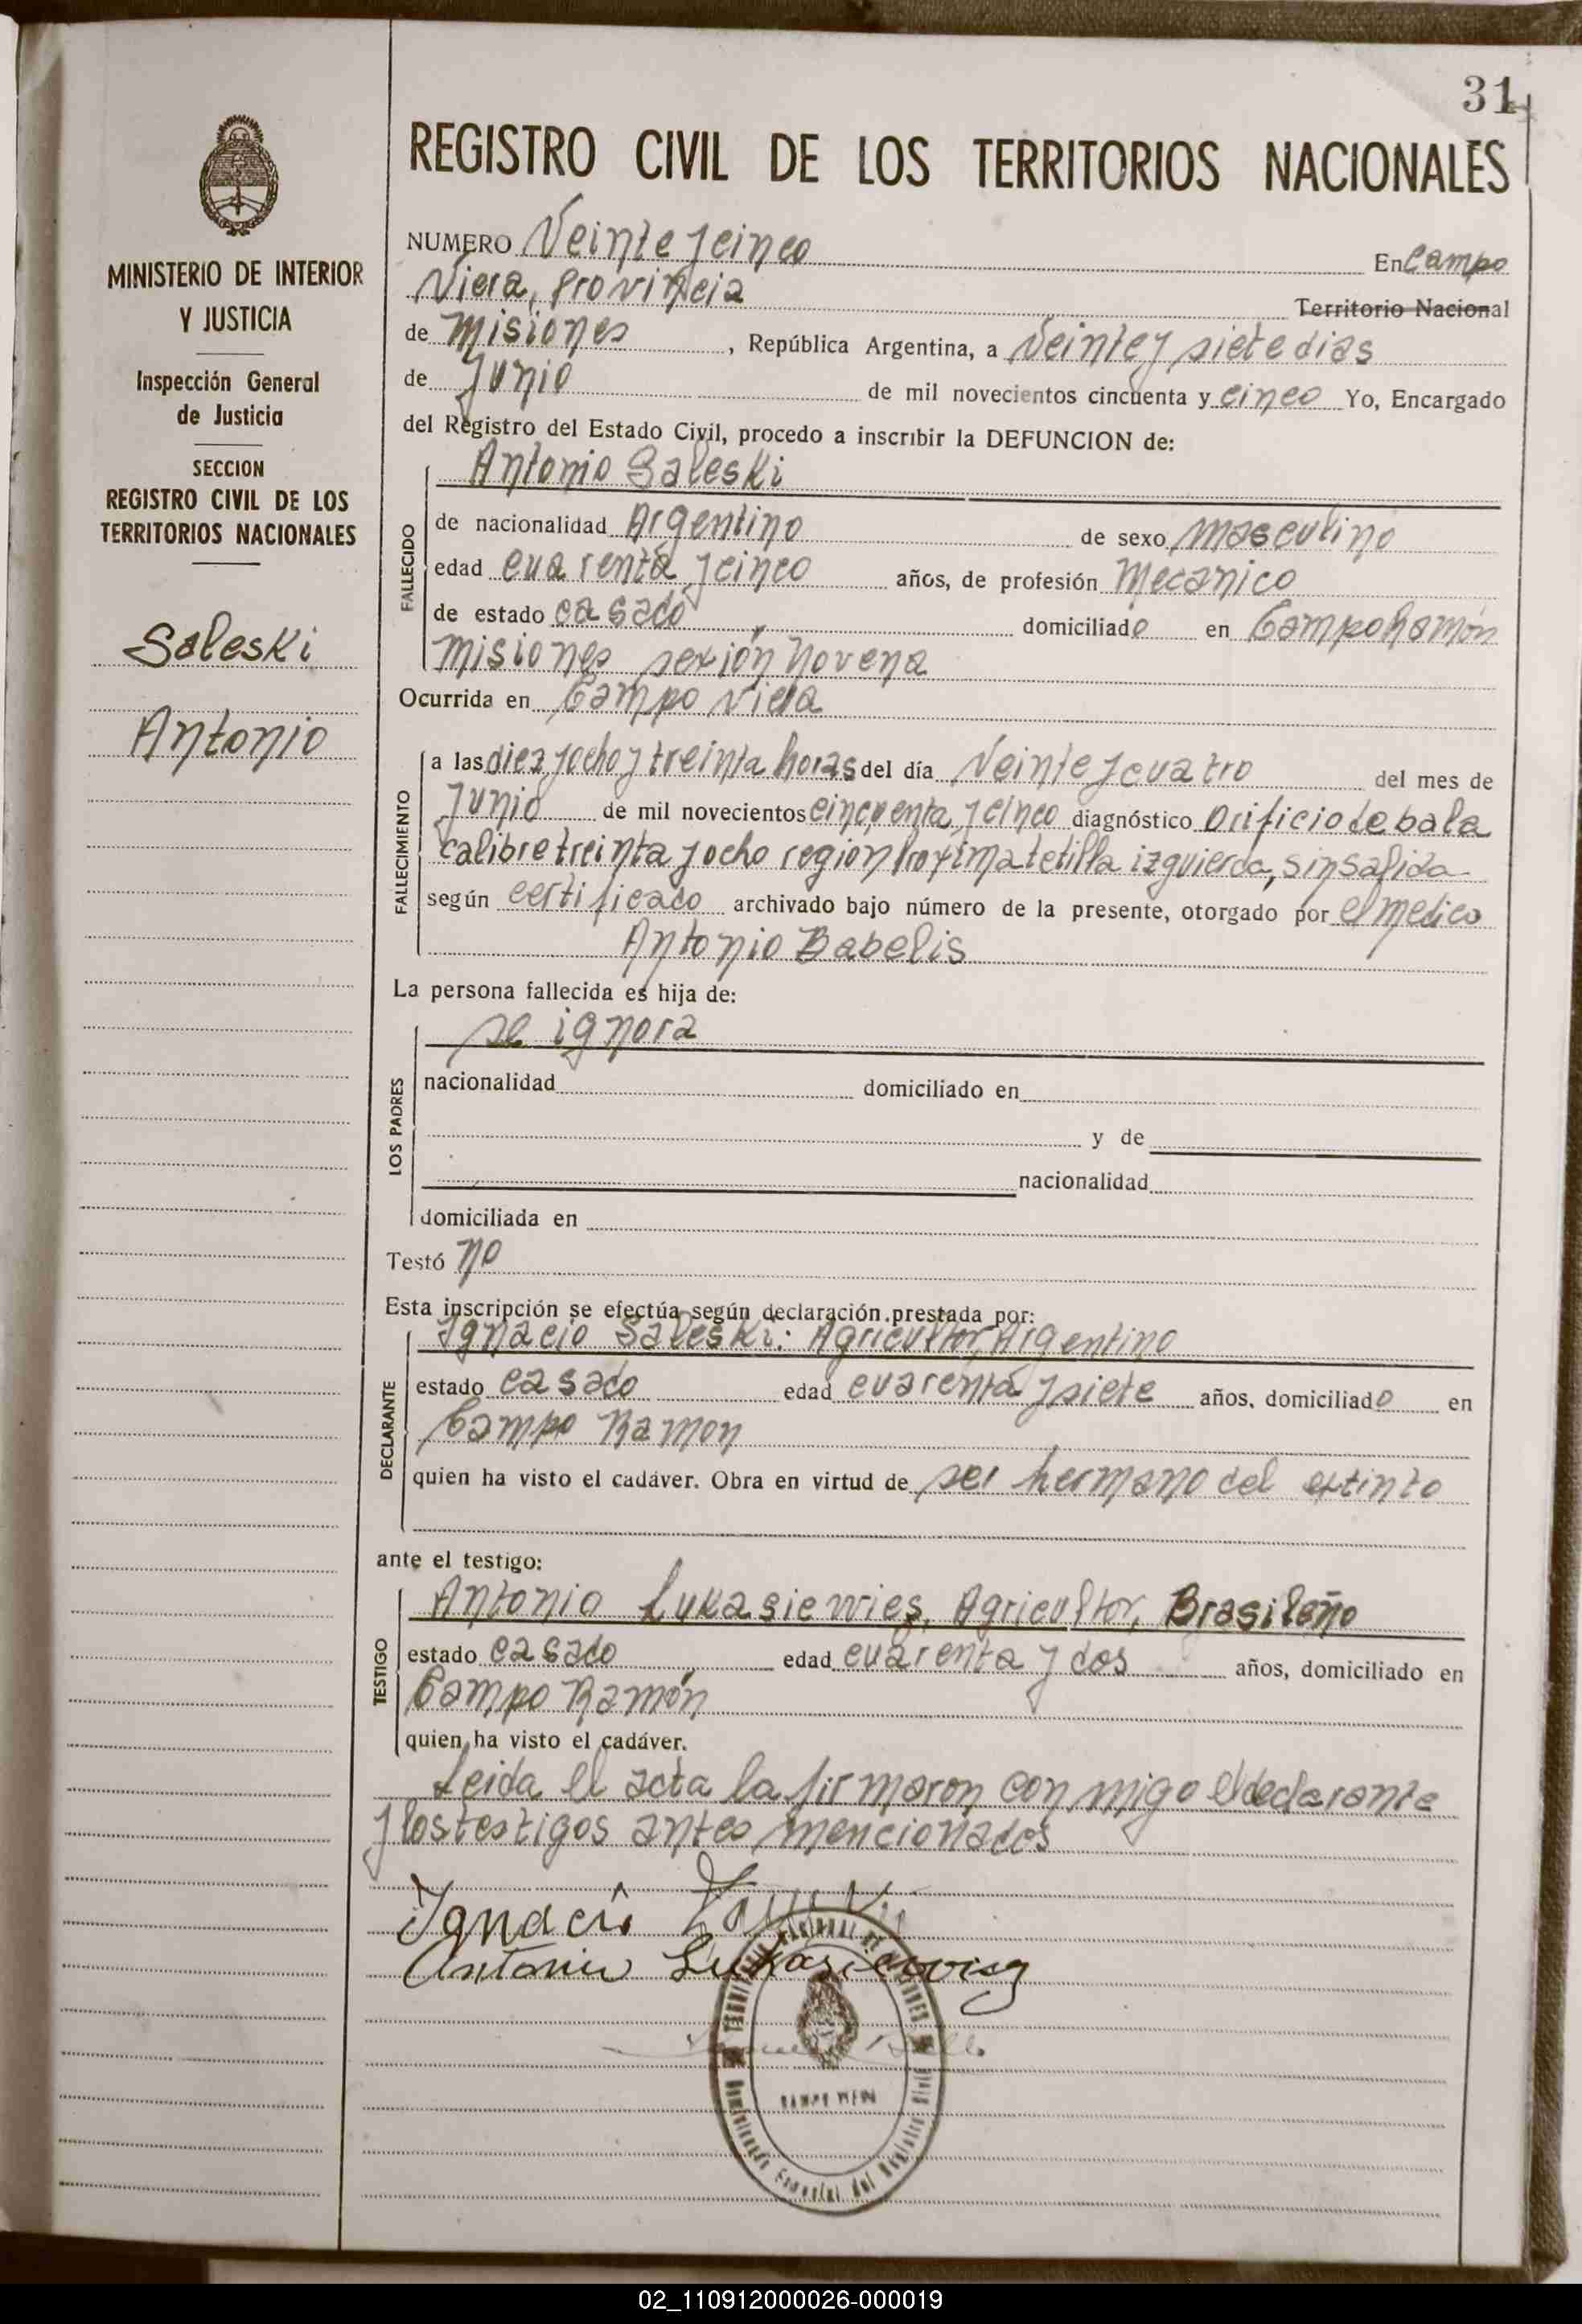 31
REGISTRO CIVIL DE LOS TERRITORIOS NACIONALES
MINISTERIO DE INTERIOR
Y JUSTICIA
Inspección General
de Justicia
SECCION
REGISTRO CIVIL DE LOS
TERRITORIOS NACIONALES
Saleski
Antonio
NUMERO Veinte y cinco En Campo
Viera, Provincia Territorio Nacional
de Misiones, República Argentina, a Veinte y siete dias
de Junio de mil novecientos cincuenta y cinco Yo, Encargado
del Registro del Estado Civil, procedo a inscribir la DEFUNCION de:
Antonio Saleski
FALLECIDO
de nacionalidad Argentino de sexo masculino
edad cuarenta y cinco años, de profesión Mecanico
de estado casado domiciliado en Campo Ramón
Misiones sexión Novena
Ocurrida en Campo Viera
FALLECIMIENTO
a las diez y ocho y treinta horas del día Veinte y cuatro del mes de
Junio de mil novecientos cincuenta y cinco diagnóstico Orificio de bala
calibre treinta y ocho region Proxima tetilla izquierda, sin salida
según certificado archivado bajo número de la presente, otorgado por el medico
Antonio Babelis
La persona fallecida es hija de:
LOS PADRES
se ignora
nacionalidad domiciliado en
y de
nacionalidad
domiciliada en
Testó no
Esta inscripción se efectúa según declaración prestada por:
DECLARANTE
Ignacio Saleski: Agricultor, Argentino
estado casado edad cuarenta y siete años, domiciliado en
Campo Ramon
quien ha visto el cadáver. Obra en virtud de ser hermano del extinto
ante el testigo:
TESTIGO
Antonio Lukasiewies, Agricultor, Brasileño
estado casado edad cuarenta y dos años, domiciliado en
Campo Ramón
quien ha visto el cadáver.
Leida el acta la firmaron con migo el declarante
y los testigos antes mencionados
Ignacio
Antonio Lukasiewisz
CAMPO VIERA
02_110912000026-000019